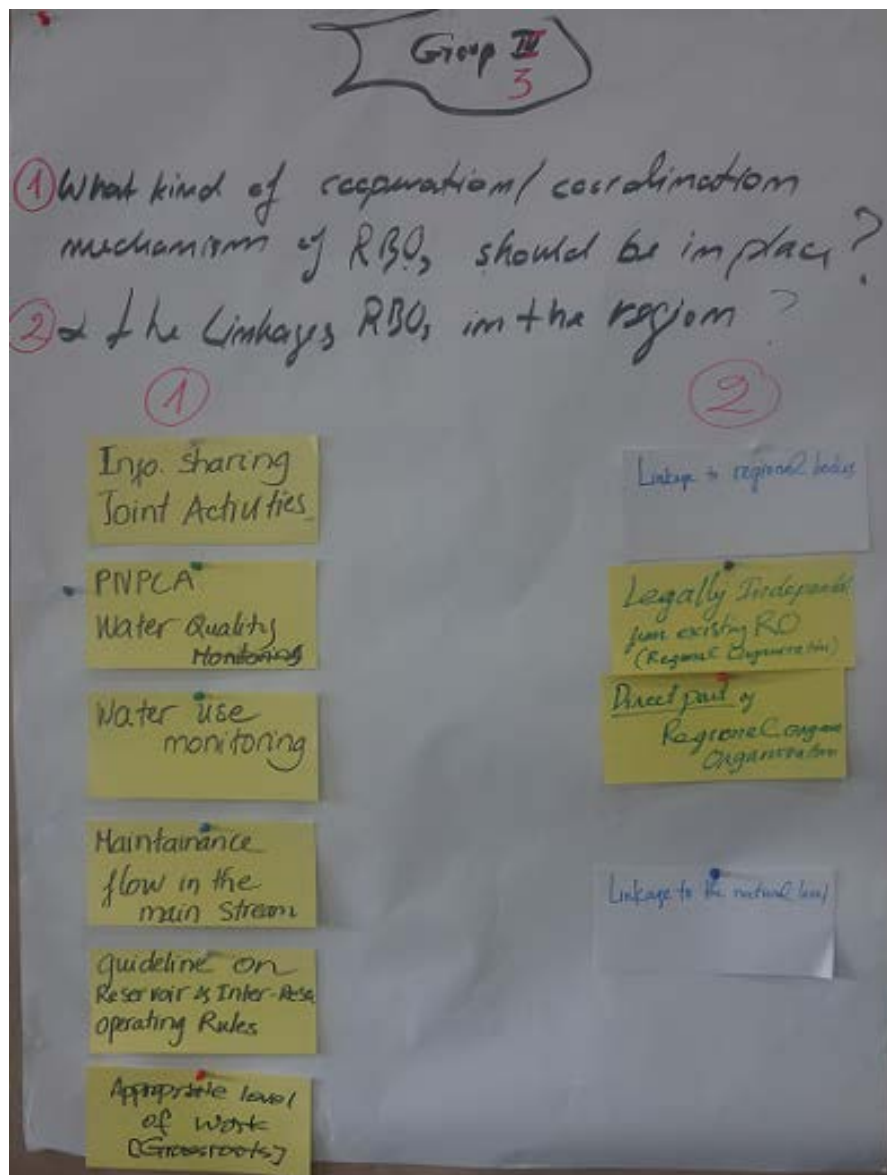 Group III
3
① What kind of cooperation/coordination
mechanism of RBOs should be in place?
② & the Linkages RBOs in the region?
①
Info. sharing
Joint Activities
PNPCA
Water Quality
Monitoring
Water use
monitoring
Maintainance
flow in the
main stream
guideline on
Reservoir & Inter-Rese
operating Rules
Appropriate level
of work
[Grassroots]
②
Linkage to regional bodies
Legally Independent
from existing RO
(Regional Organization)
Direct part of
Regional
Organization
Linkage to the national level